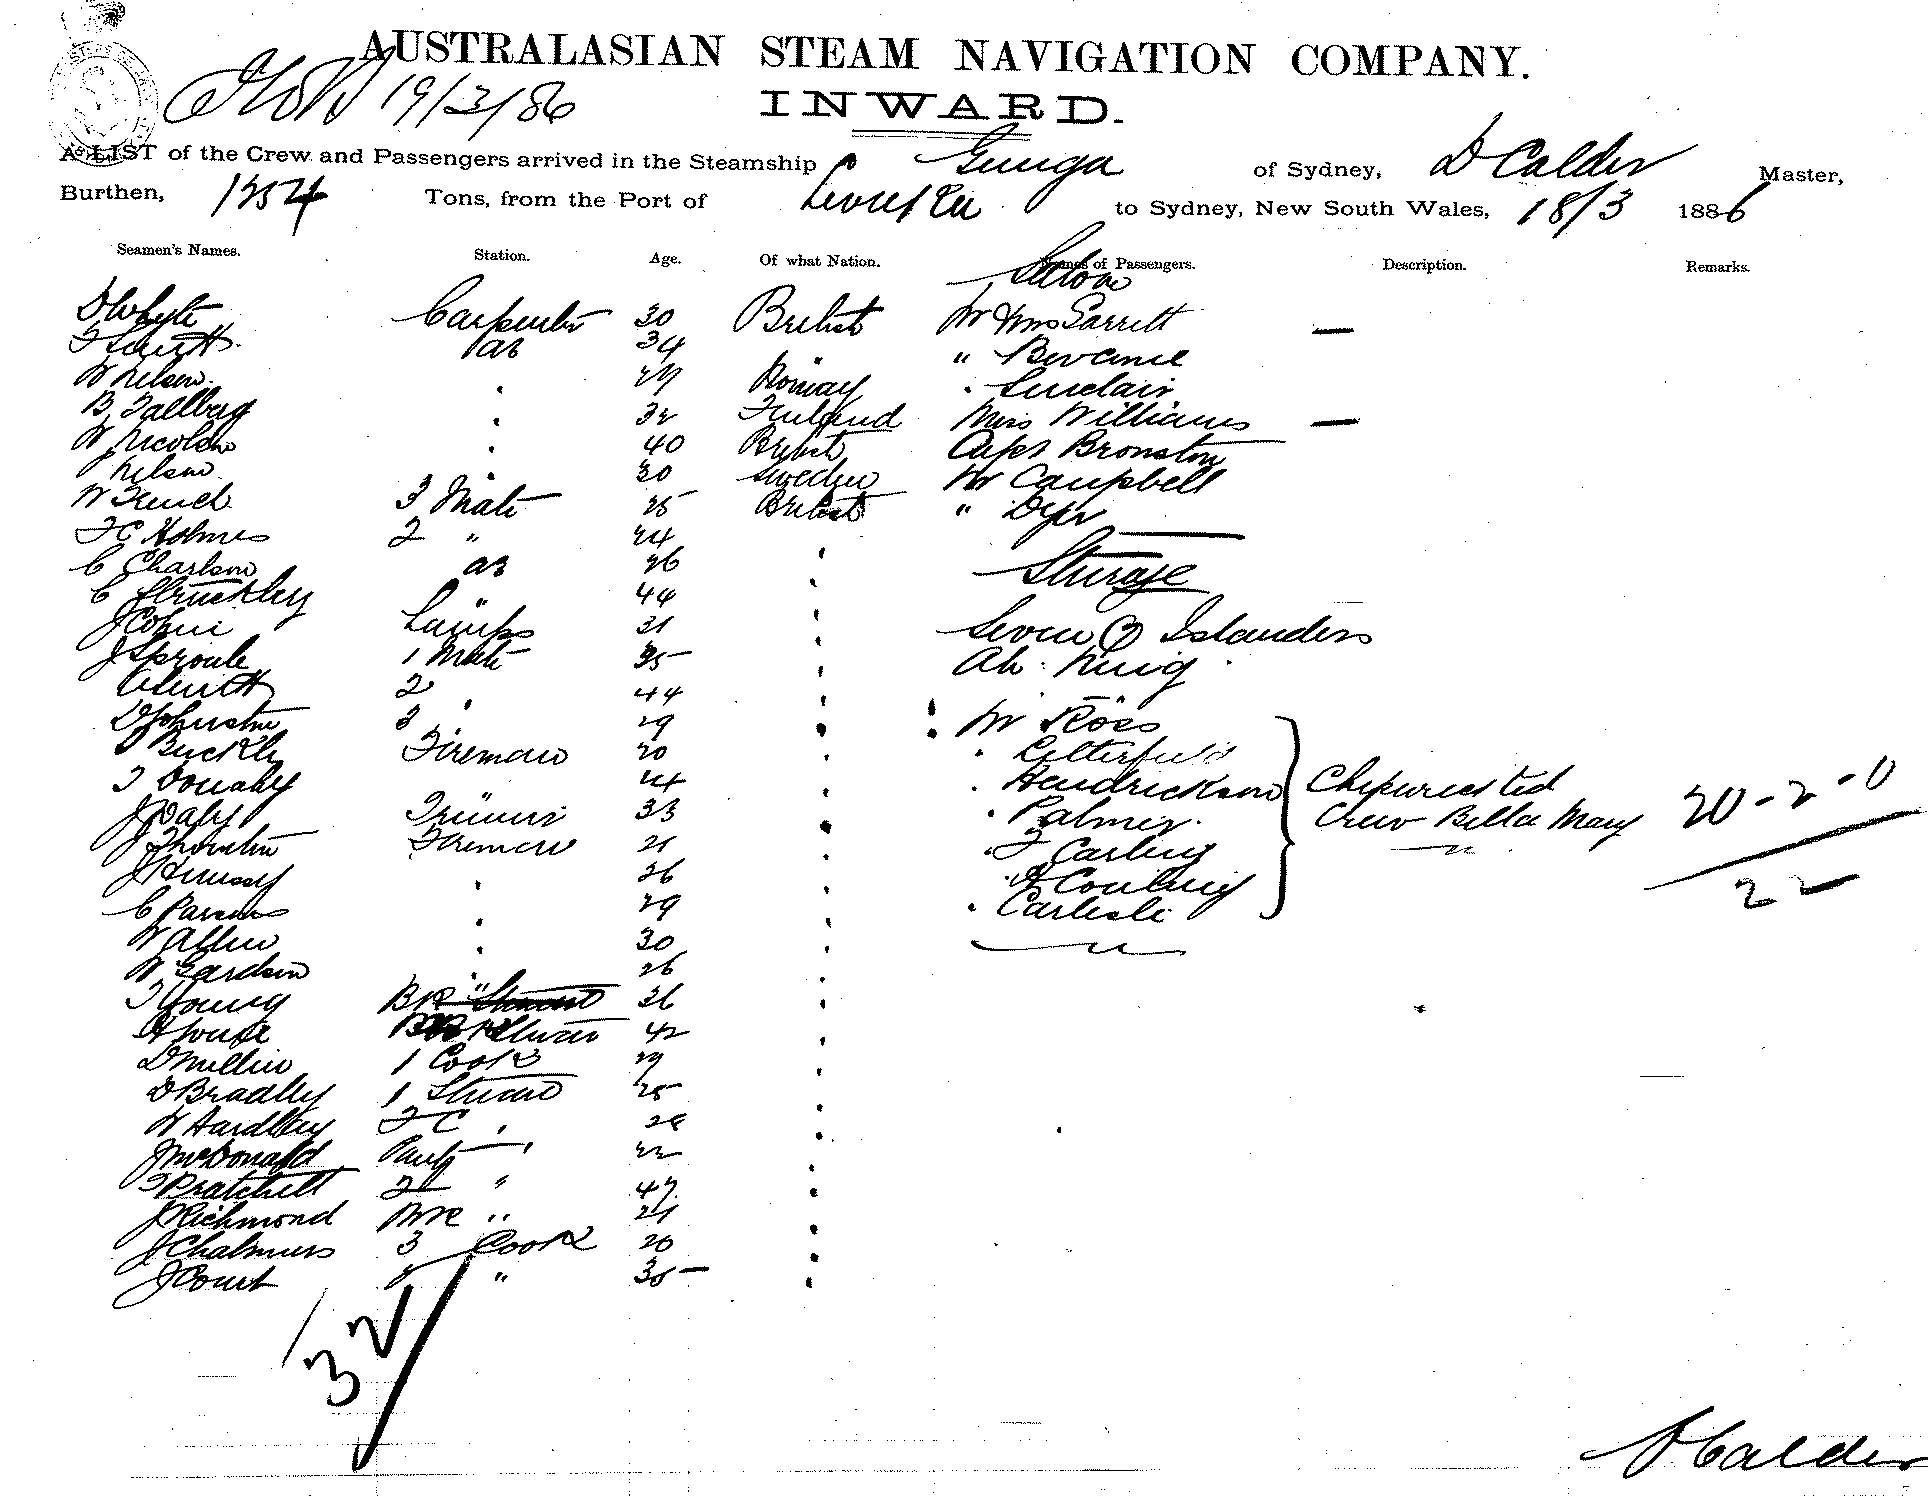 AUSTRALASIAN STEAM NAVIGATION COMPANY.
19/3/86
INWARD.
A LIST of the Crew and Passengers arrived in the Steamship Gunga of Sydney, D Calder Master,
Burthen, 1254 Tons, from the Port of to Sydney, New South Wales, 18/3 1886
Seamen's Names. Station. Age. Of what Nation. Names of Passengers. Description. Remarks.
Saloon
D Whyte Carpenter 30 British Mr & Mrs Garrett —
T Smith AB 34 " Bovanne
W Nelson " 29 Norway " Sinclair
B Tallberg " 32 Finland Miss Williams —
W Nicolson " 40 British Capt Bronston
Nelson " 30 Sweden Mr Campbell
W French 3 Mate 25 British " Dyer
F C Holmes 2 " 24
C Charlson AB 26 Steerage
C Struckley " 44
J Cohni Lamps 31 Seven (7) Islanders
J Sproule 1 Mate 35 Ah
C Smith 2 " 44
D Johnston 3 29 Mr Ross
Buckley Fireman 20 " Litterfield
T Donahy " 24 " Hendrickson Shipwrecked
J Daly Trimmer 33 " Palmer Crew Bella Mary 20-2-0
J Thornton Fireman 21 " F Carling
J Hennessy " 26 " A Conling 22
C Parsons " 29 " Carlisle
W Allen " 30
W " 26
T Young BK 36
A House Steward 42
D Mullin 1 Cook 29
D Bradley 1 Steward 25
W Hardley FC " 28
J McDonald Pantry " 22
T Pratchett 2 " 47
J Richmond " 21
J Chalmers 3 Cook 20
J Court 2 " 35
32
D Calder